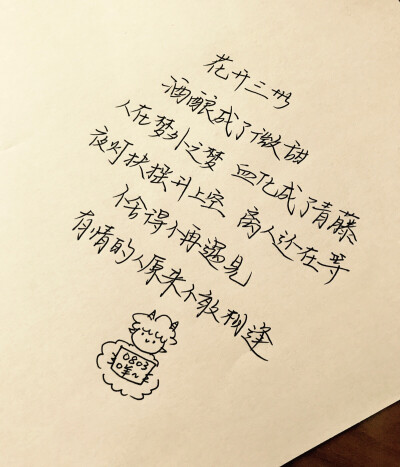 花开三
酒酿成了微甜
人在梦外之梦 血化成了青藤
夜灯扶摇升上空 离人还在等
舍得不再遇见
有情的人原来不敢相逢
0803